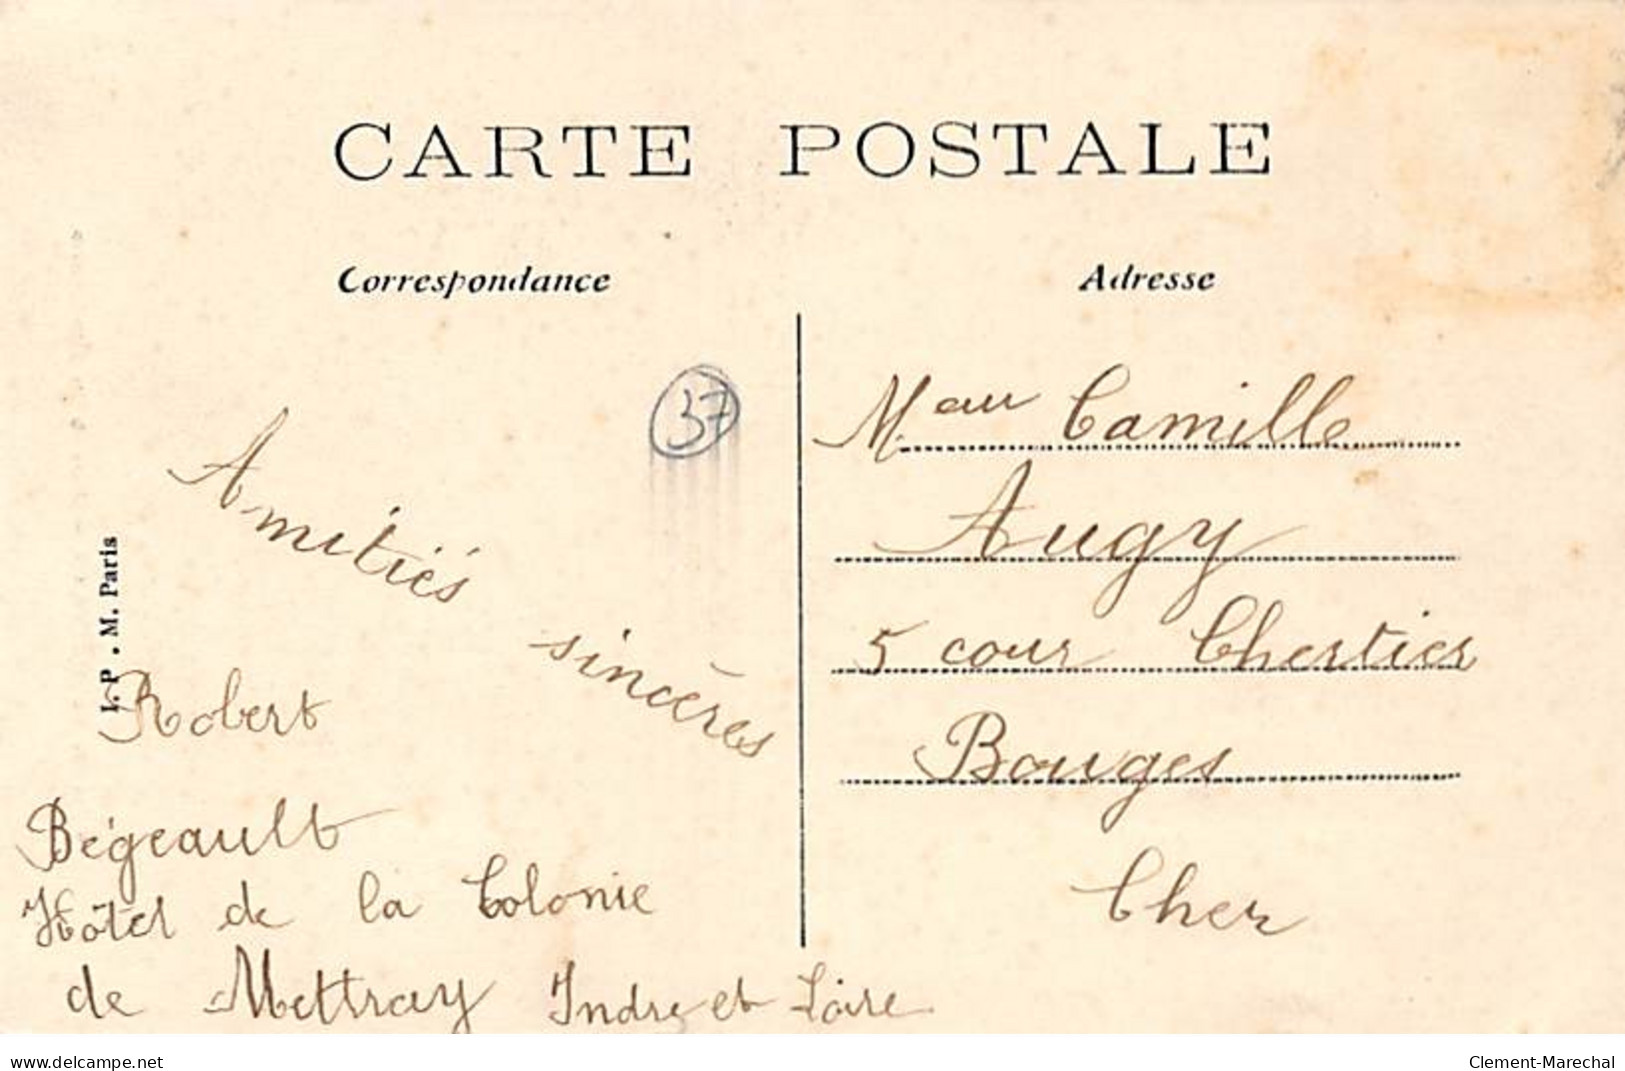 CARTE POSTALE
Correspondance
Adresse
37
Amitiés
sincères
I. P. M. Paris
Robert
Bégeault
Hôtel de la Colonie
de Mettray Indre et Loire
Camille
Augy
5 cour Chertier
Bouges
Cher
delcampe.net
Clement-Marechal